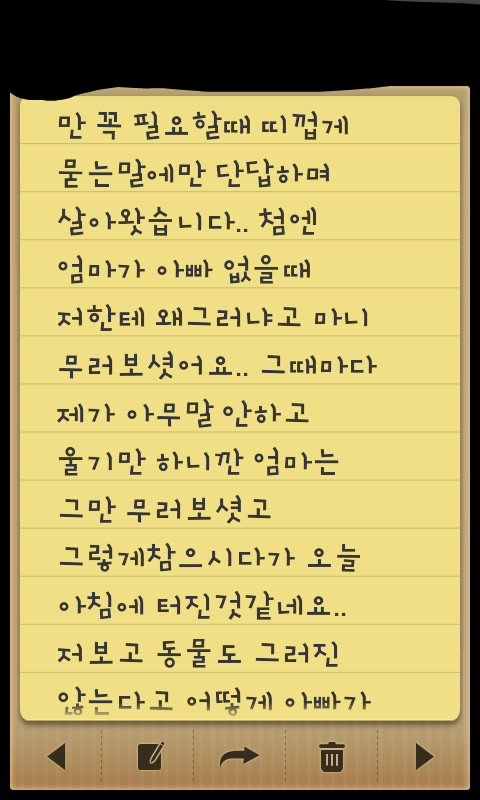 만 꼭 필요할때 띠껍게
묻는말에만 단답하며
살아왓습니다.. 첨엔
엄마가 아빠 없을때
저한테 왜그러냐고 마니
무러보셧어요.. 그때마다
제가 아무말 안하고
울기만 하니깐 엄마는
그만 무러보셧고
그렇게참으시다가 오늘
아침에 터진것같네요..
저보고 동물도 그러진
않는다고 어떻게 아빠가